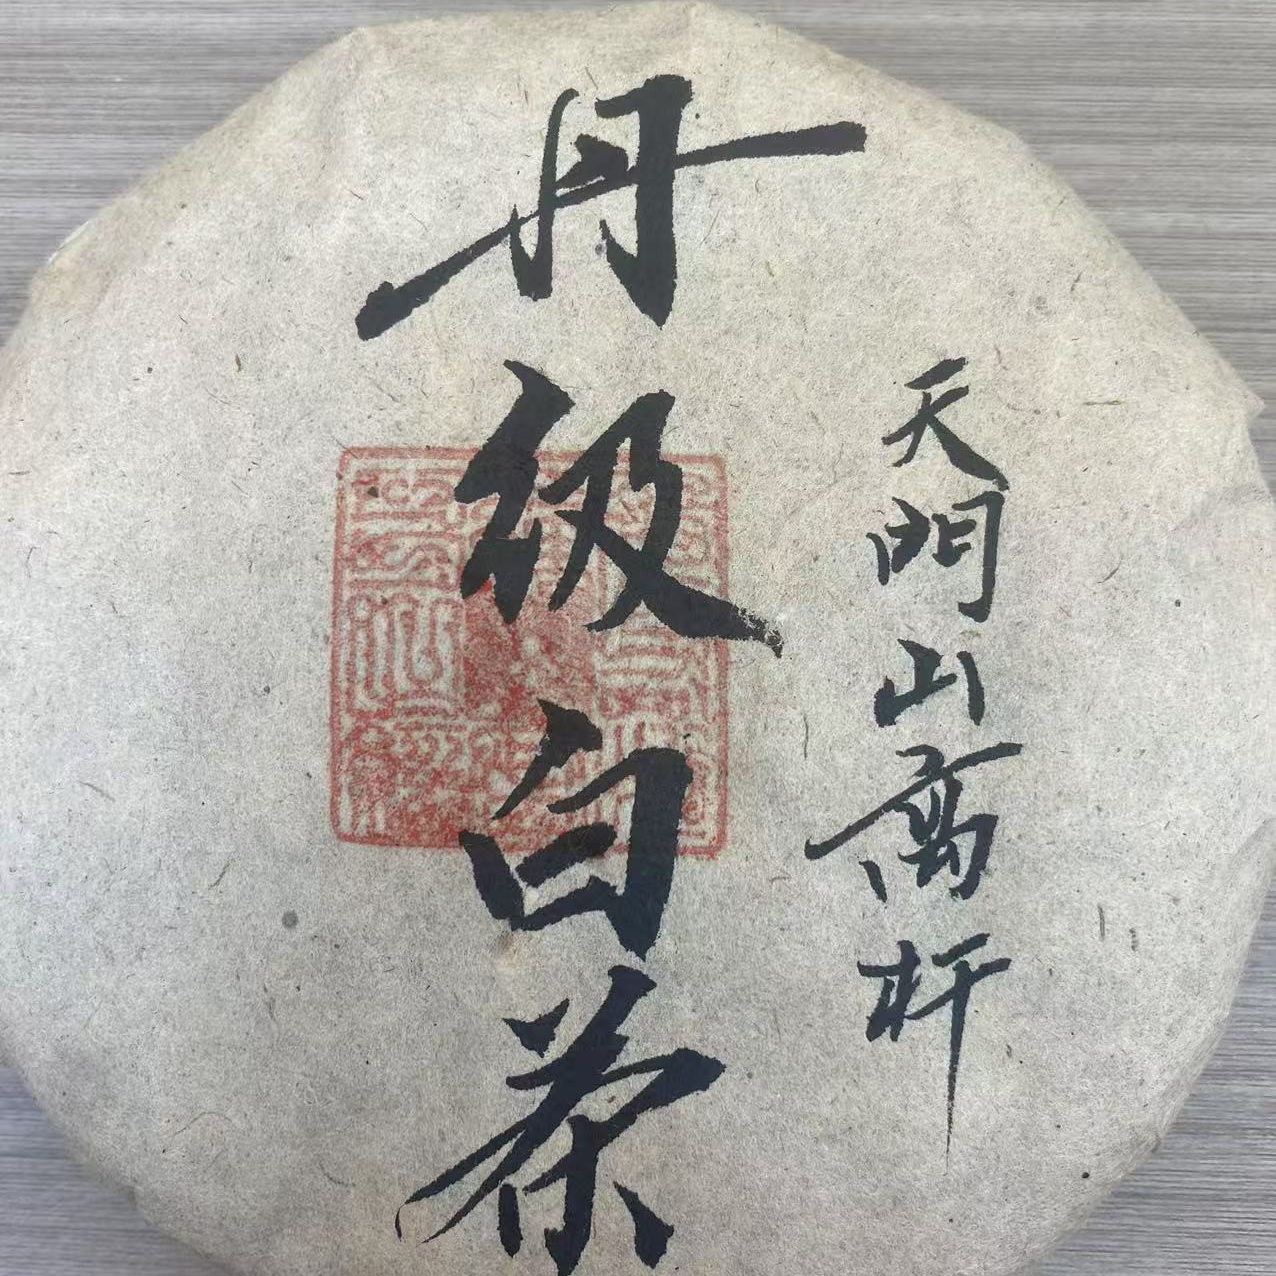 天門山高杆
丹级白茶